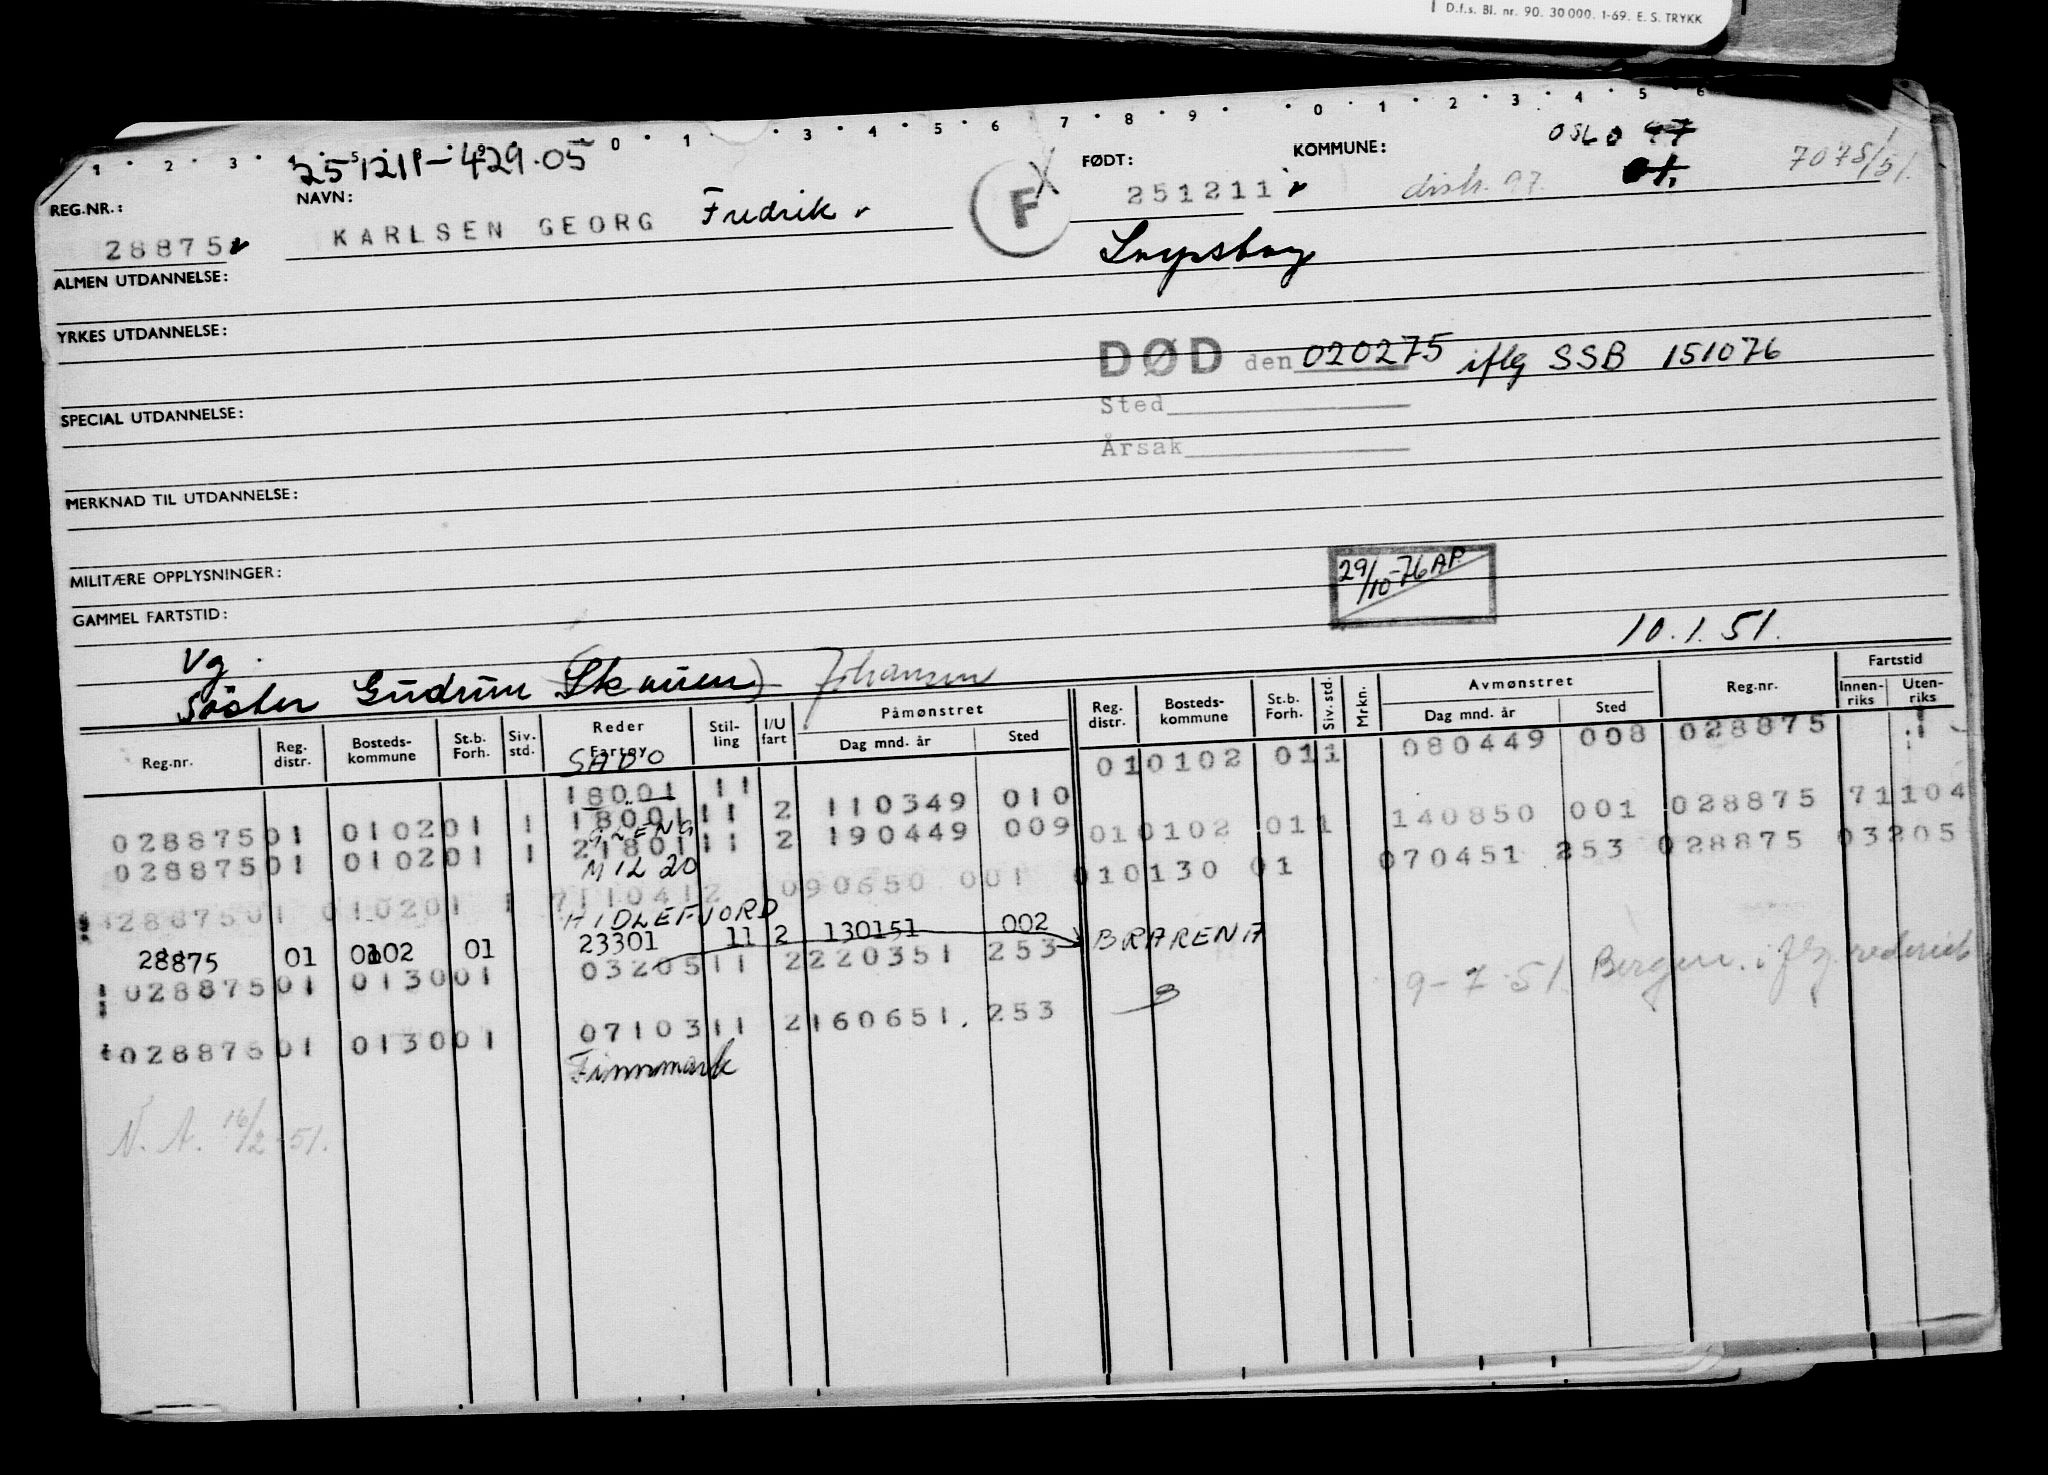 D.f.s. Bl. nr. 90. 30 000. 1-69. E. S. TRYKK
1 2 3 0 1 3 4 5 6 7 8 9 0 1 2 3 4 5 6
OSLO 97
251211-429.05
REG.NR.: NAVN: FØDT: KOMMUNE:
28875 KARLSEN GEORG Fredrik F X 251211 distr. 97. 01. 7075/51.
ALMEN UTDANNELSE:
YRKES UTDANNELSE:
DØD den 020275 iflg SSB 151076
SPECIAL UTDANNELSE: Sted
Årsak
MERKNAD TIL UTDANNELSE:
MILITÆRE OPPLYSNINGER: 29/10-76 AP.
GAMMEL FARTSTID:
Vg. 10.1.51.
Søster Gudrun (Skauen) Johansen
Reg.nr. Reg. distr. Bosteds-kommune St.b. Forh. Siv. std. Reder Fartøy Stil-ling I/U fart Påmønstret Dag mnd. år Sted Reg. distr. Bosteds-kommune St.b. Forh. Siv. std. Mrkn. Avmønstret Dag mnd. år Sted Reg.nr. Fartstid Innen-riks Uten-riks
SABO
18001 11 010102 011 080449 008 028875
028875 01 0102 01 1 18001 11 2 110349 010
GLENG
028875 01 0102 01 1 21801 11 2 190449 009 010102 011 140850 001 028875 71104
MIL 20
028875 01 0102 01 1 7110412 090650 001 010130 01 070451 253 028875 03205
HIDLEFJORD
28875 01 0102 01 23301 11 2 130151 002 BRARENA
028875 01 0130 01 03205 11 2 220351 253
9-7-51. Bergen. iflg. rederiet
028875 01 0130 01 07103 11 2 160651. 253
Finnmark
N. A. 16/2-51.